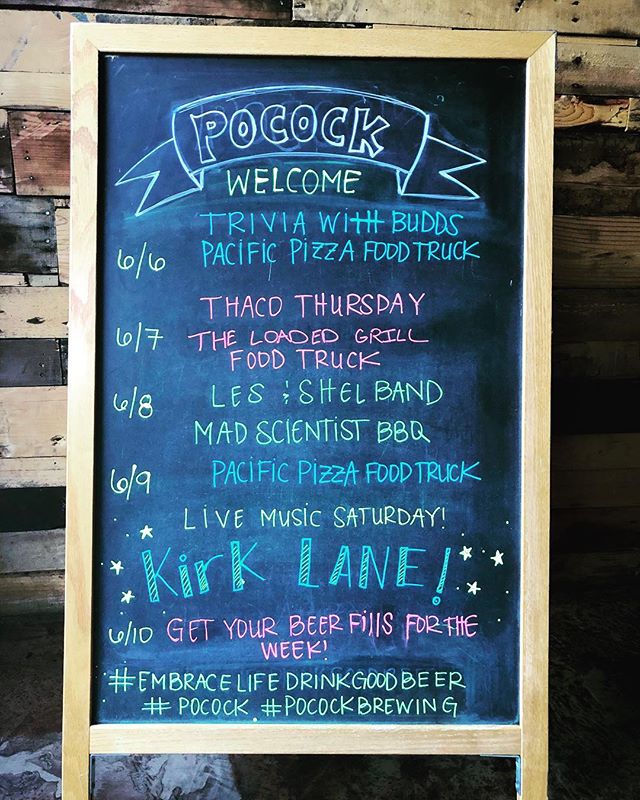 POCOCK
WELCOME
TRIVIA WITH BUDDS
6/6 PACIFIC PIZZA FOOD TRUCK
THACO THURSDAY
6/7 THE LOADED GRILL
FOOD TRUCK
6/8 LES & SHEL BAND
MAD SCIENTIST BBQ
6/9 PACIFIC PIZZA FOOD TRUCK
LIVE MUSIC SATURDAY!
KirK LANE!
6/10 GET YOUR BEER FILLS FOR THE
WEEK!
#EMBRACELIFEDRINKGOODBEER
# POCOCK #POCOCKBREWING